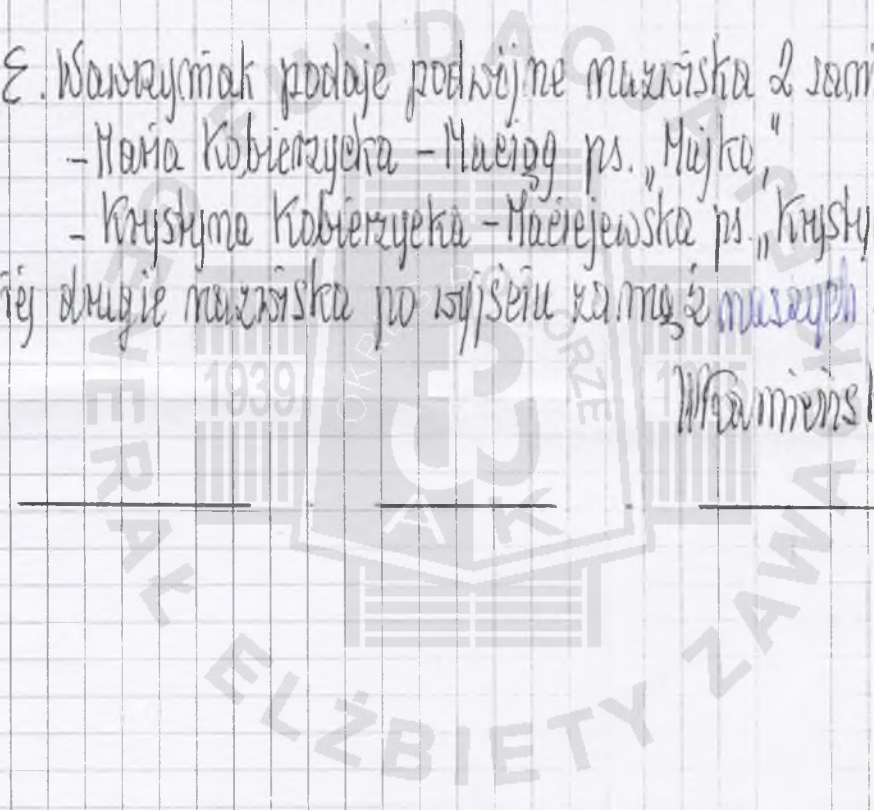 E. Wawrzyniak podaje podwójne nazwiska 2 sani
- Maria Kobierzycka - Maciąg ps. „Majka"
- Krystyna Kobierzycka - Maciejewska ps. „Krysty
iej drugie nazwiska po wyjściu za mąż naszych
FUNDACJA
GENERAŁ ELŻBIETY ZAWACKIEJ
1939
AK